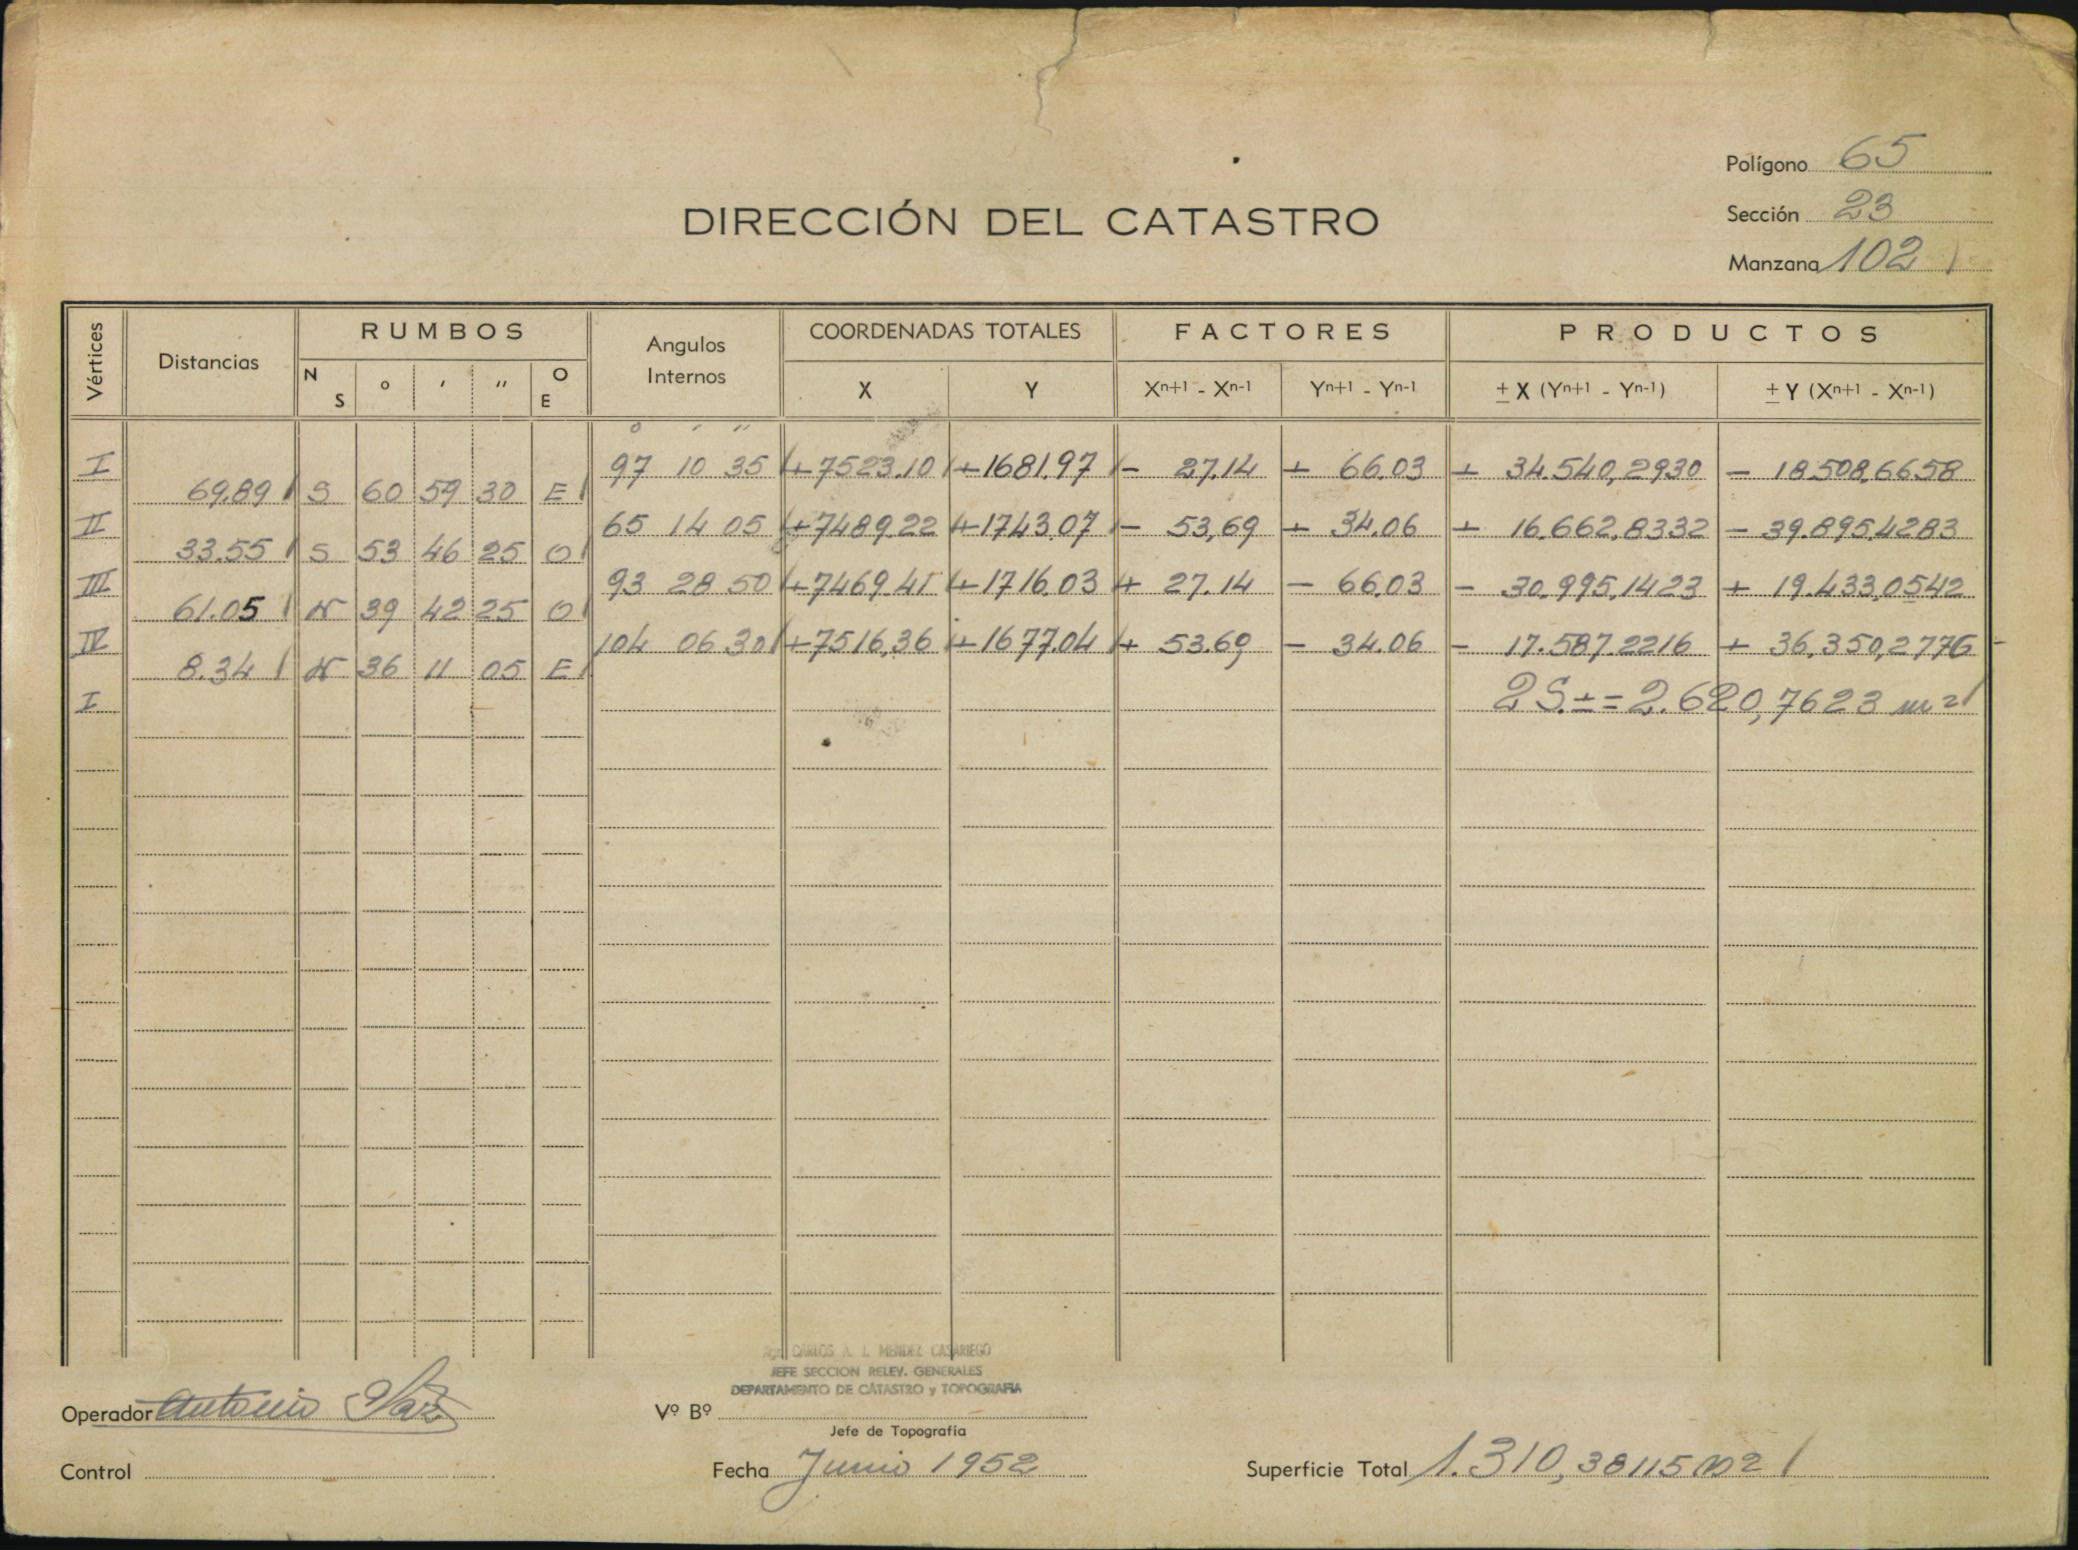 Polígono 65
Sección 23
Manzana 102
DIRECCIÓN DEL CATASTRO
Vértices Distancias RUMBOS Angulos Internos COORDENADAS TOTALES FACTORES PRODUCTOS
N S o ' " O E X Y Xn+1 - Xn-1 Yn+1 - Yn-1 ± X (Yn+1 - Yn-1) ± Y (Xn+1 - Xn-1)
o ' "
I 97 10 35 +7523.10 +1681.97 - 27.14 + 66.03 + 34.540,2930 - 18.508,6658
69.89 S 60 59 30 E
II 65 14 05 +7489.22 +1743.07 - 53,69 + 34.06 + 16.662,8332 - 39.895,4283
33.55 S 53 46 25 O
III 93 28 50 +7469.41 +1716.03 + 27.14 - 66.03 - 30.995,1423 + 19.433,0542
61.05 N 39 42 25 O
IV 104 06 30 +7516,36 +1677.04 + 53.69 - 34.06 - 17.587.2216 + 36,350,2776
8.34 N 36 11 05 E
I 2S ± = 2.620,7623 m2
CARLOS A. L. MENDEZ CASARIEGO
JEFE SECCION RELEV. GENERALES
DEPARTAMENTO DE CATASTRO y TOPOGRAFIA
Operador Antonio
Vº Bº
Jefe de Topografía
Control
Fecha Junio 1952
Superficie Total 1.310,38115 m2